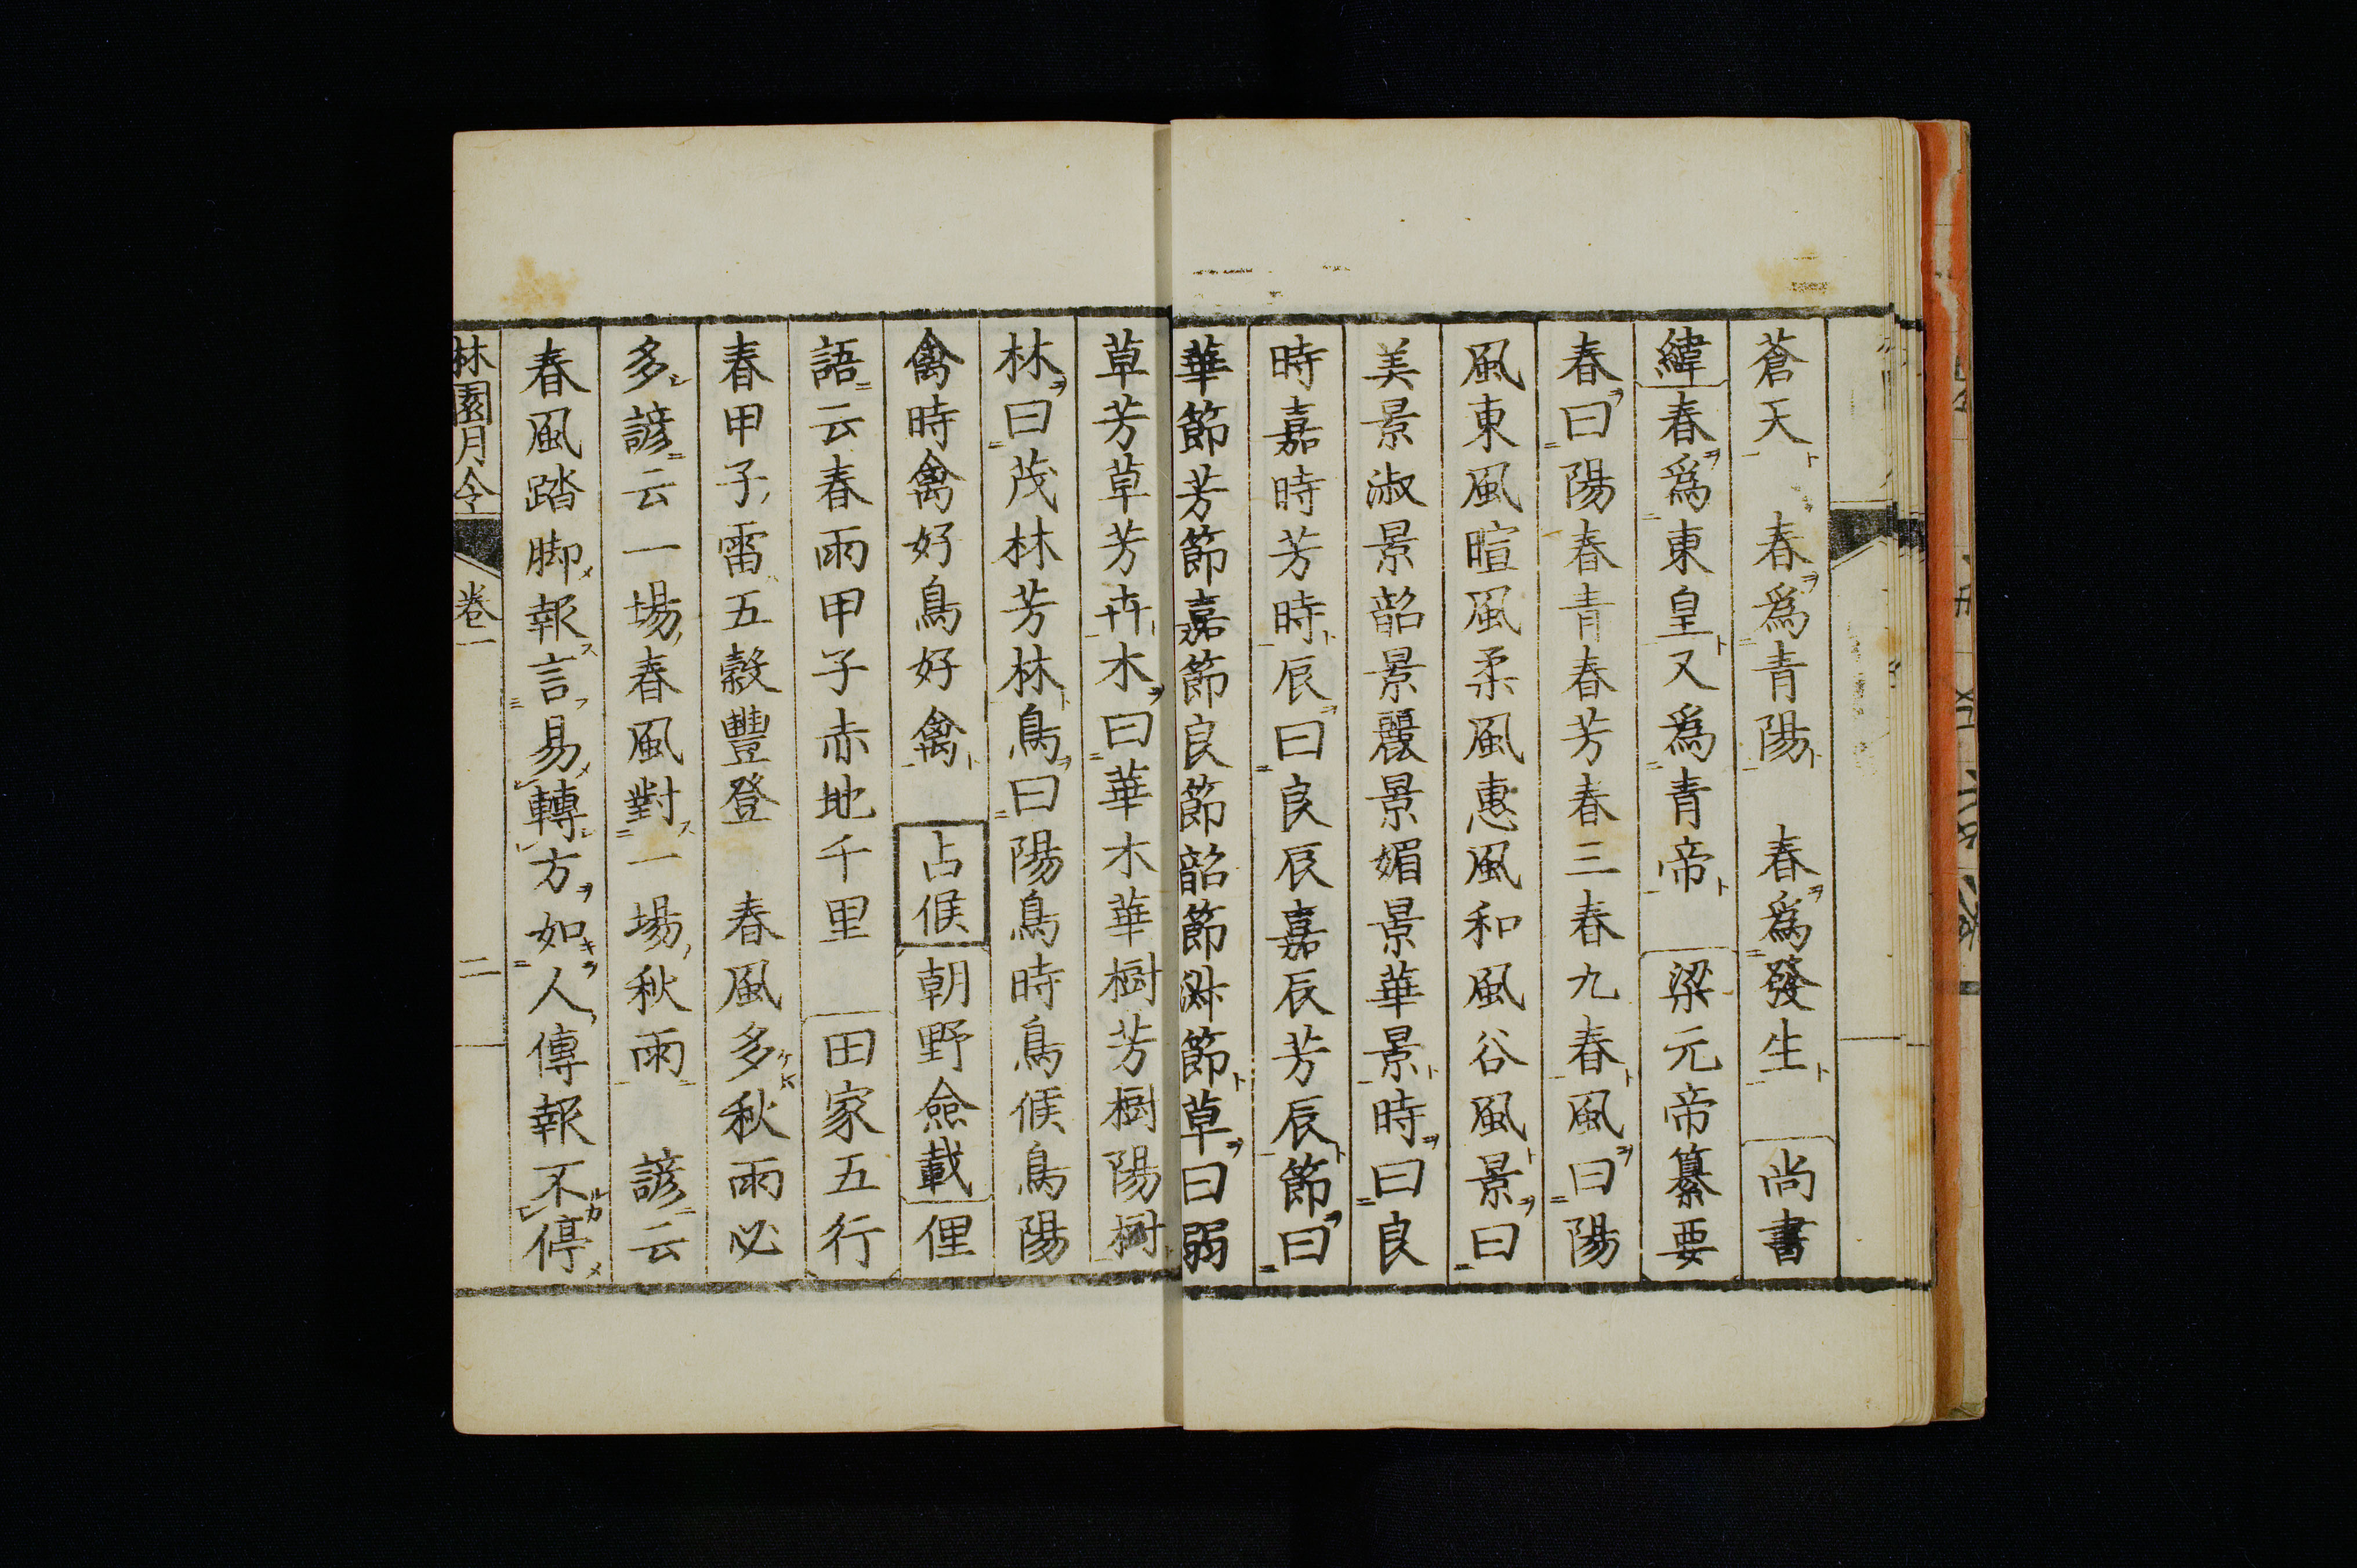 蒼天　春爲青陽　春爲發生　尚書
緯春爲東皇又爲青帝　梁元帝纂要
春曰陽春青春芳春三春九春風曰陽
風東風暄風柔風惠風和風谷風景曰
美景淑景韶景麗景媚景華景時曰良
時嘉時芳時辰曰良辰嘉辰芳辰節曰
華節芳節嘉節良節韶節淑節草曰弱
草芳草芳卉木曰華木華樹芳樹陽樹
林曰茂林芳林鳥曰陽鳥時鳥候鳥陽
禽時禽好鳥好禽　占候　朝野僉載俚
語云春雨甲子赤地千里　田家五行
春甲子雷五穀豐登　春風多秋雨必
多諺云一場春風對一場秋雨　諺云
春風踏脚報言易轉方如人傳報不停
林園月令　卷一　二